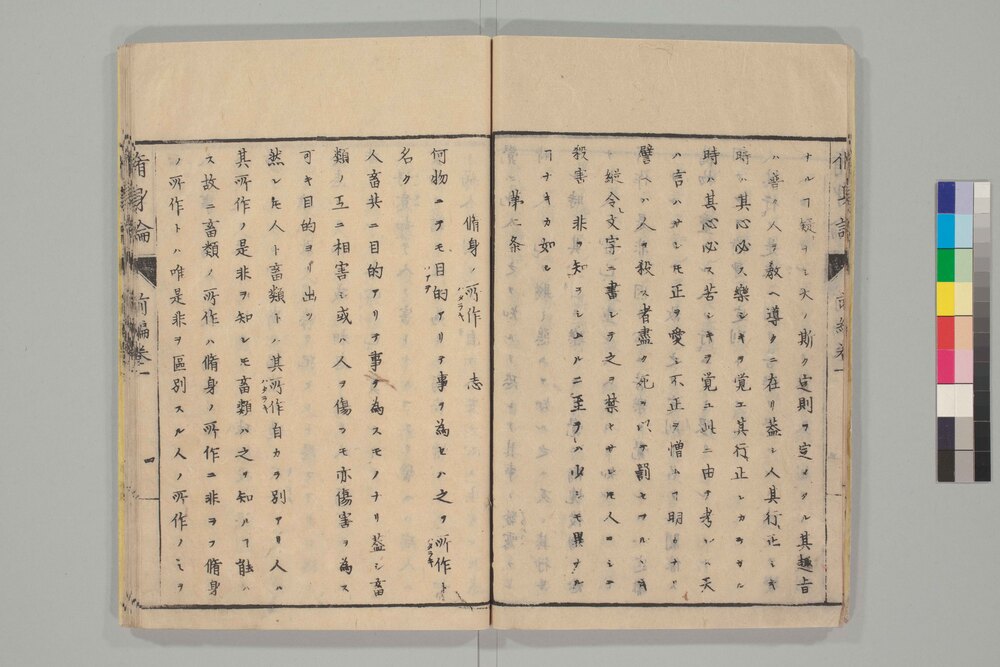 ナルヿ疑ヲシ天ノ斯ク定則ヲ定メタル其趣旨
ハ善ノ人ヲ教ヘ導クニ在リ蓋シ人其行正シキ
時ハ其心必ス樂シキヲ覚エ其行正シカラサル
時ハ其心必ス苦シキヲ覚ユ此ニ由テ考レハ天
ハ言ハサレモ正ヲ愛シ不正ヲ憎ムヿ明ナリ
譬ヘハ人ヲ殺ス者盡ク死ヲ以テ罰セラルヽ
縦令文字ニ書シテ之ヲ禁セサレモ人ヲシテ
殺害ノ非ヲ知ラシムルニ至テハ少シモ異ナル
ヿナキカ如シ
第二条
脩身ノ所作 志
ハタラキ
何物ニテモ目的アリテ事ヲ為セハ之ヲ所作ト
ハタラキ
名ク
人畜共ニ目的アリテ事ヲ為スモノナリ蓋シ畜
類ノ互ニ相害シ或ハ人ヲ傷フモ亦傷害ヲ為ス
可キ目的ヨリ出ツ
然レモ人ト畜類トハ其所作自カラ別アリ人ハ
ハタラキ
其所作ノ是非ヲ知レモ畜類ハ之ヲ知ルヿ能ハ
ス故ニ畜類ノ所作ハ脩身ノ所作ニ非ラフ脩身
ノ所作トハ唯是非ヲ區別スル人ノ所作ノミヲ
脩身論
前編巻一
四